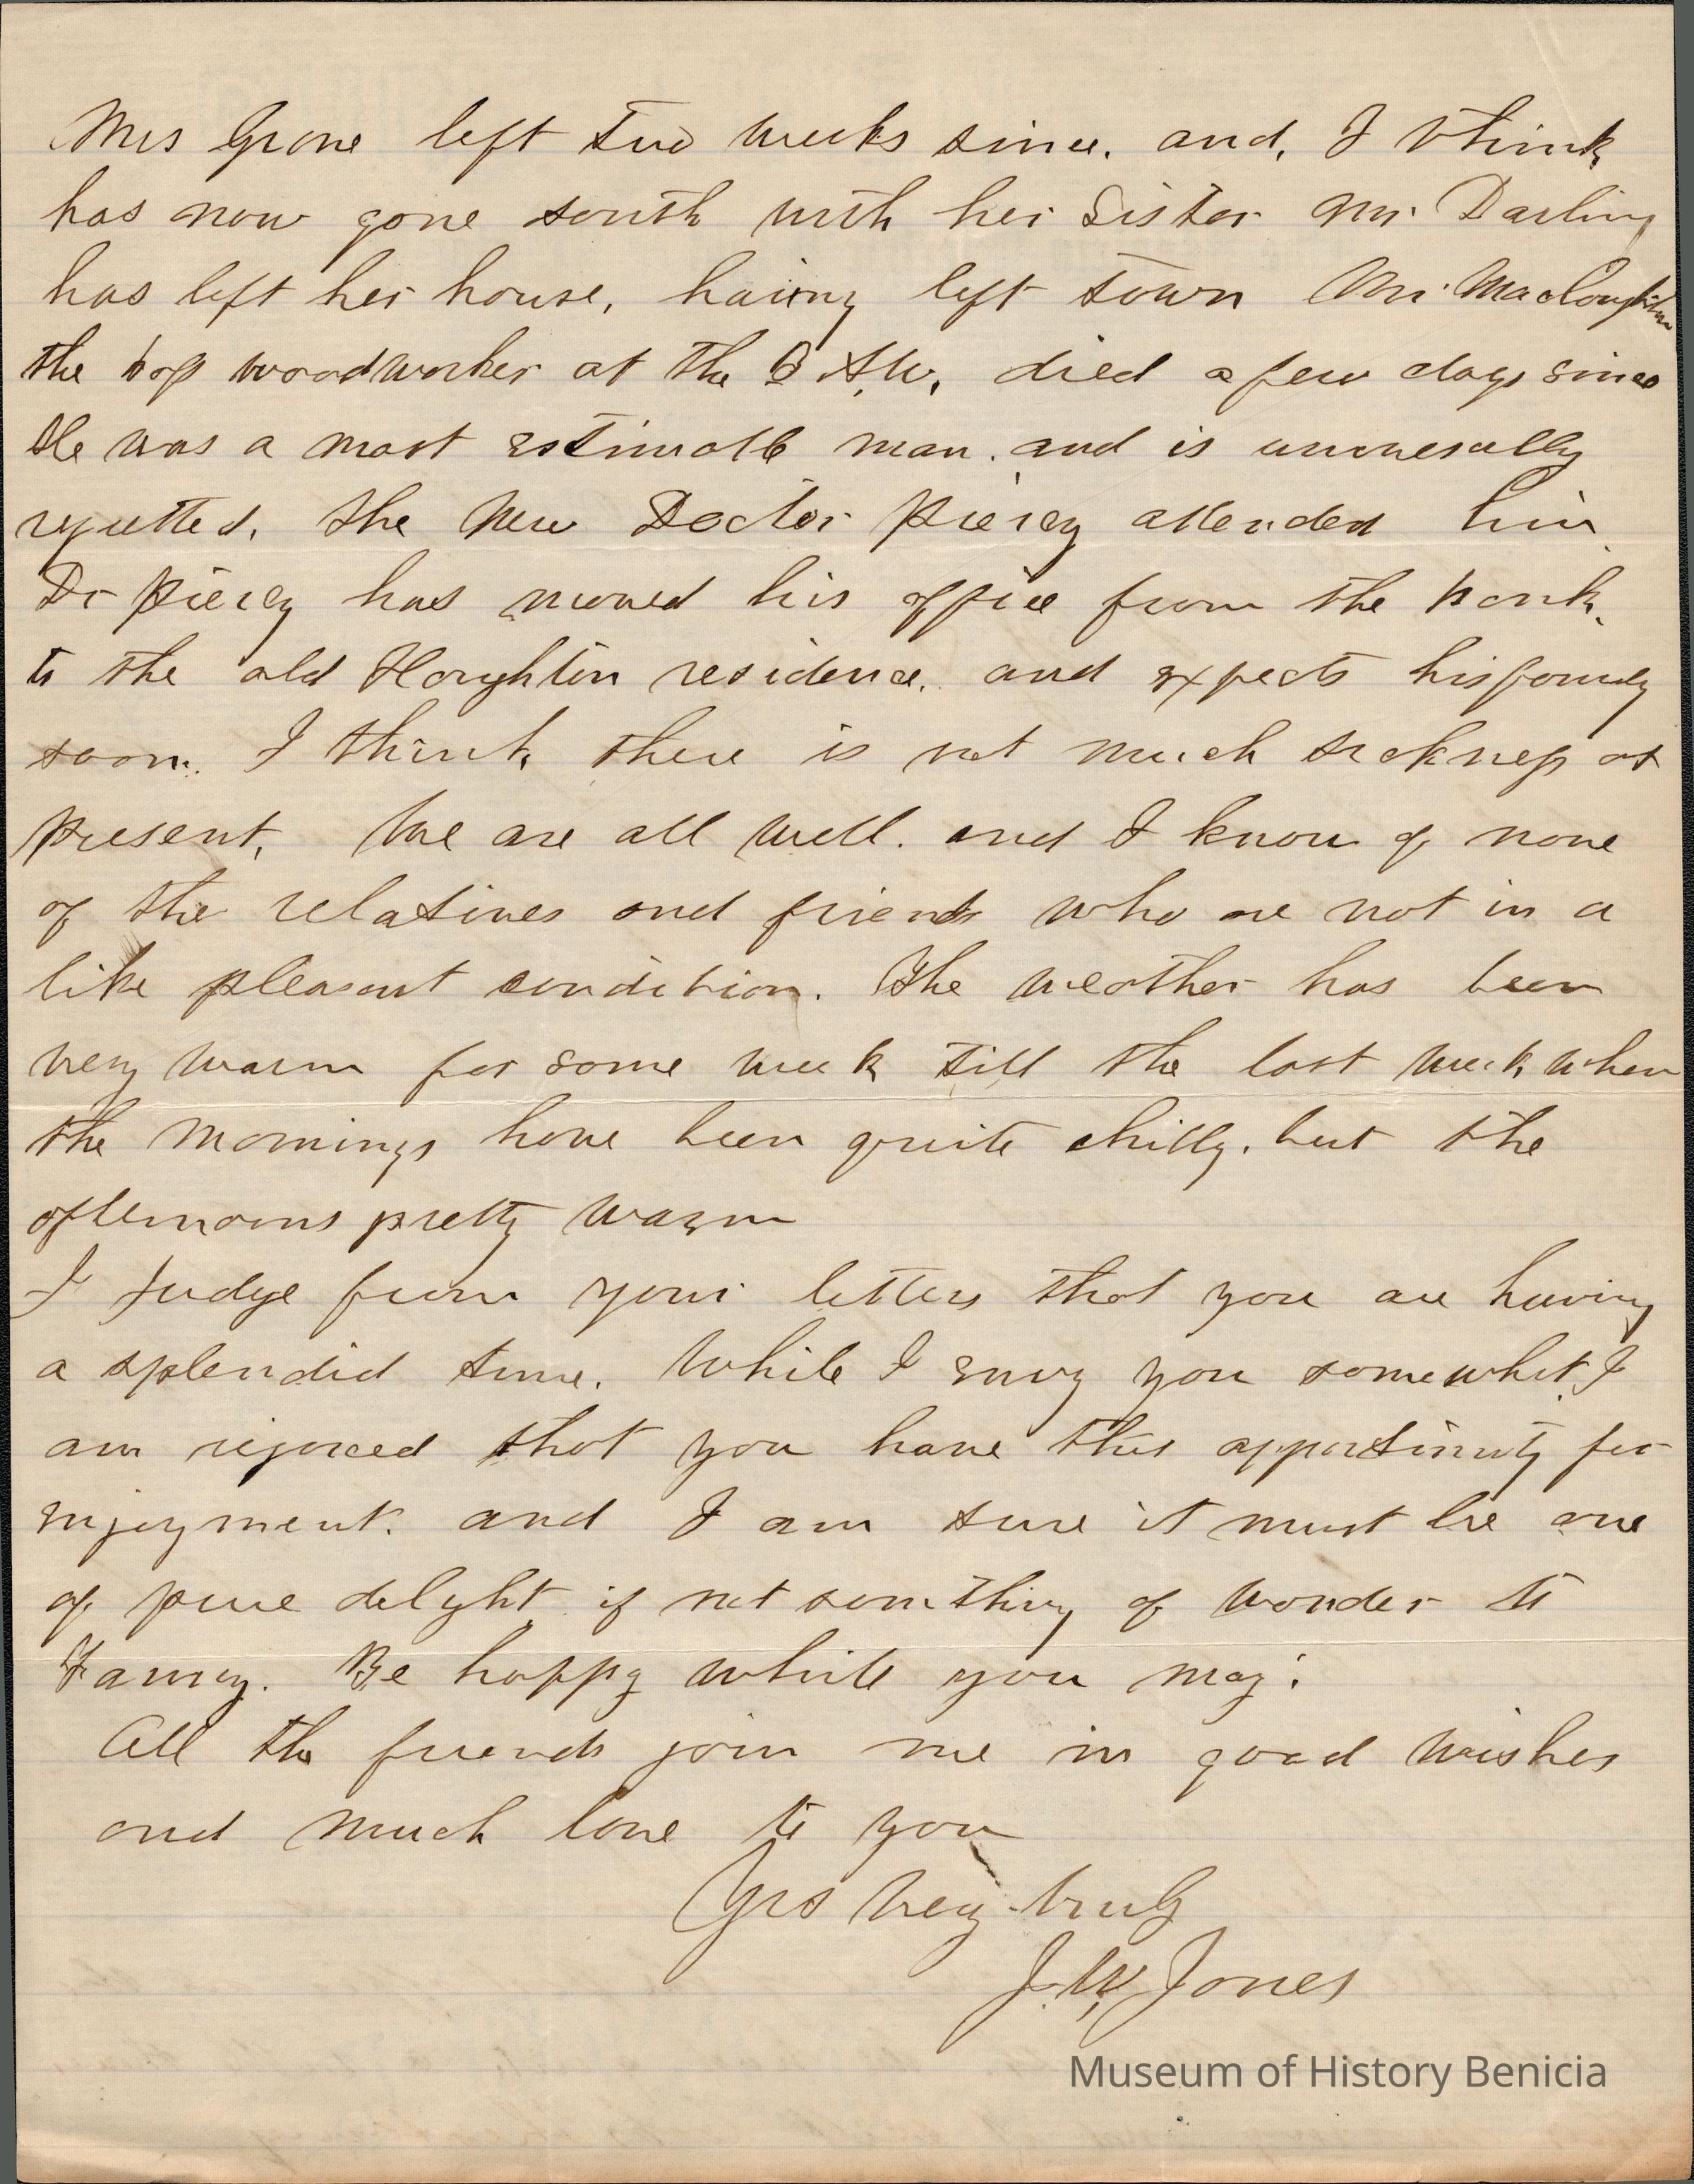 Mrs Grove left two weeks since. and, I think
has now gone south with her Sister Mr. Darling
has left her house, having left town Mr.
the top woodworker at the B A.W. died a few days since
He was a most estimable man. and is universally
regretted. The New Doctor Piercy attended him
Dr Piercy has moved his office from the bank
to the old Houghton residence. and expects his family
soon. I think there is not much sickness at
present. We are all well. and I know of none
of the relatives and friends who are not in a
like pleasant condition. The weather has been
very warm for some week till the last week when
the mornings have been quite chilly. but the
afternoons pretty warm
I Judge from your letters that you are having
a splendid time. While I envy you somewhat I
am rejoiced that you have this opportunity for
enjoyment. and I am sure it must be one
of pure delight if not something of wonder to
Fanny. Be happy while you may.
All the friends join me in good wishes
and much love to you
Yrs very truly
J. W. Jones
Museum of History Benicia